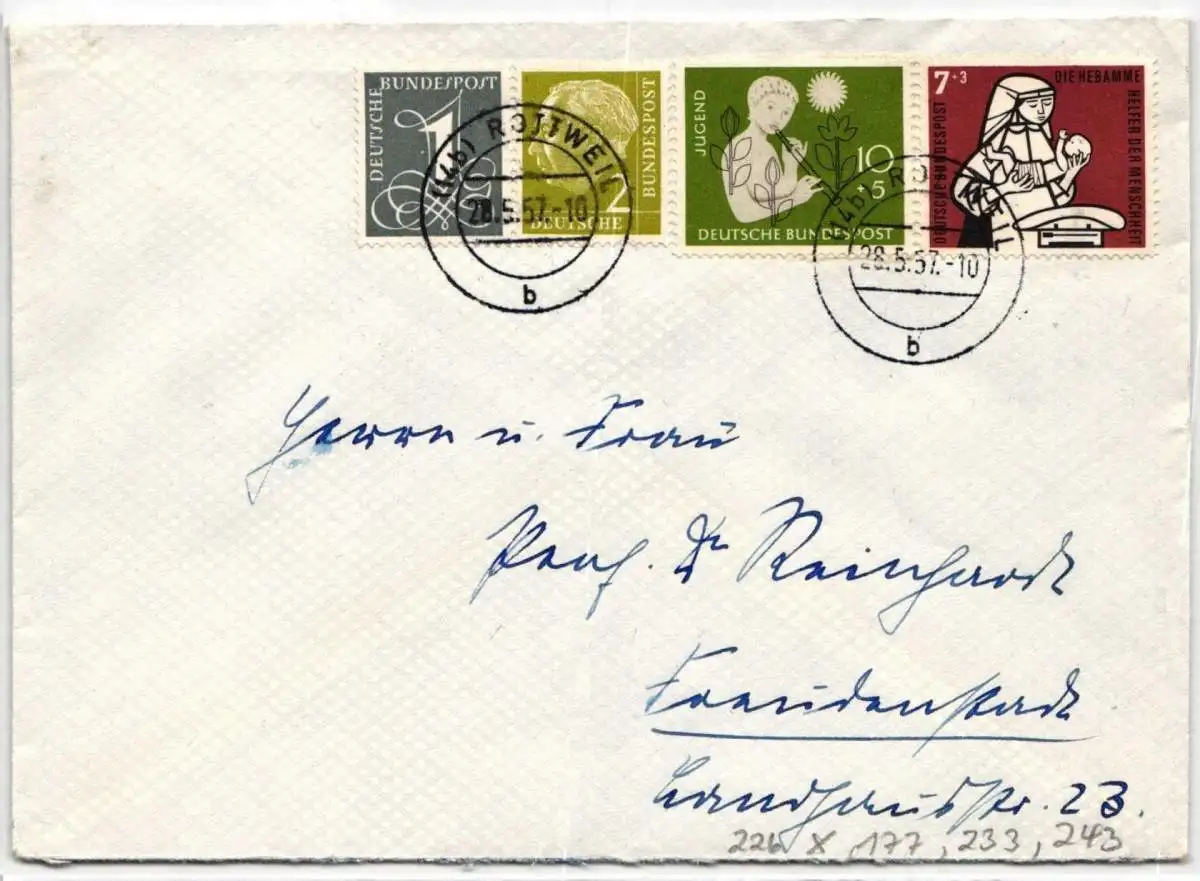 DEUTSCHE BUNDESPOST
1
DEUTSCHE BUNDESPOST
2
JUGEND
10
+5
DEUTSCHE BUNDESPOST
7+3
DIE HEBAMME
HELFER DER MENSCHHEIT
DEUTSCHE BUNDESPOST
(14b) ROTTWEIL
28.5.57.-10
b
(14b) ROTTWEIL
28.5.57.-10
b
Herrn u. Frau
Prof. Dr Reinhardt
Freudenstadt
Landhausstr. 23.
226 x, 177, 233, 243